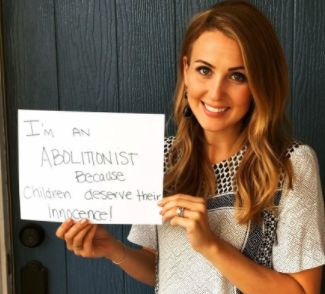 I'm AN
ABOLITIONIST
Because
Children deserve their
Innocence!